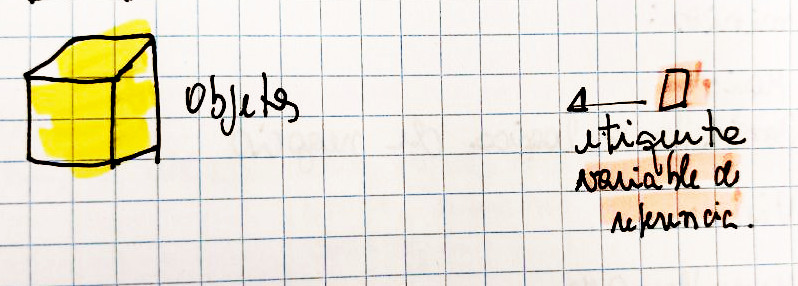 Objetos
etiqueta
variable de
referencia.